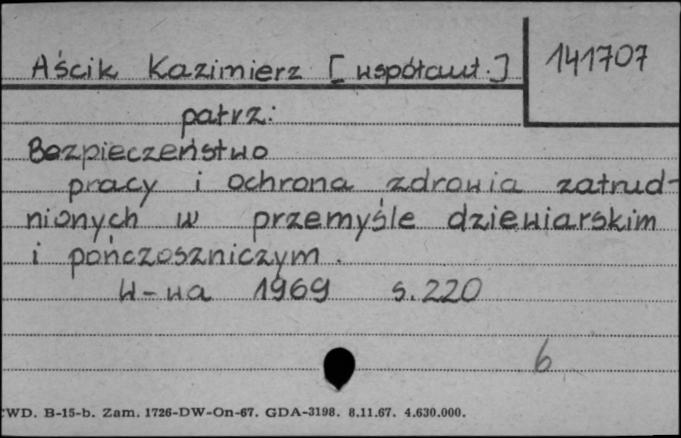 Aścik Kazimierz [współaut.] 141707
patrz:
Bezpieczeństwo
pracy i ochrona zdrowia zatrud-
nionych w przemyśle dziewiarskim
i pończoszniczym.
W-wa 1969 s. 220
6
CWD. B-15-b. Zam. 1726-DW-On-67. GDA-3198. 8.11.67. 4.630.000.